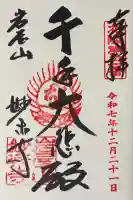 奉拝
令和七年十二月二十一日
千手大悲殿
岩屋山